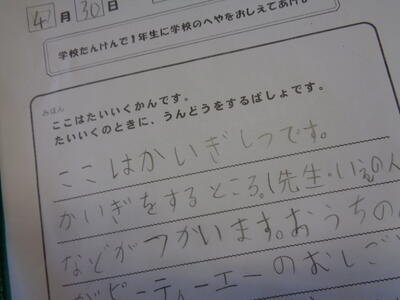 4月30日
学校たんけんで1年生に学校のへやをおしえてあげ
みほん
ここはたいいくかんです。
たいいくのときに、うんどうをするばしょです。
ここはかいぎしつです。
かいぎをするところ。(先生・いえの人
などがつかいます。おうちの
がピーティーエーのおしご